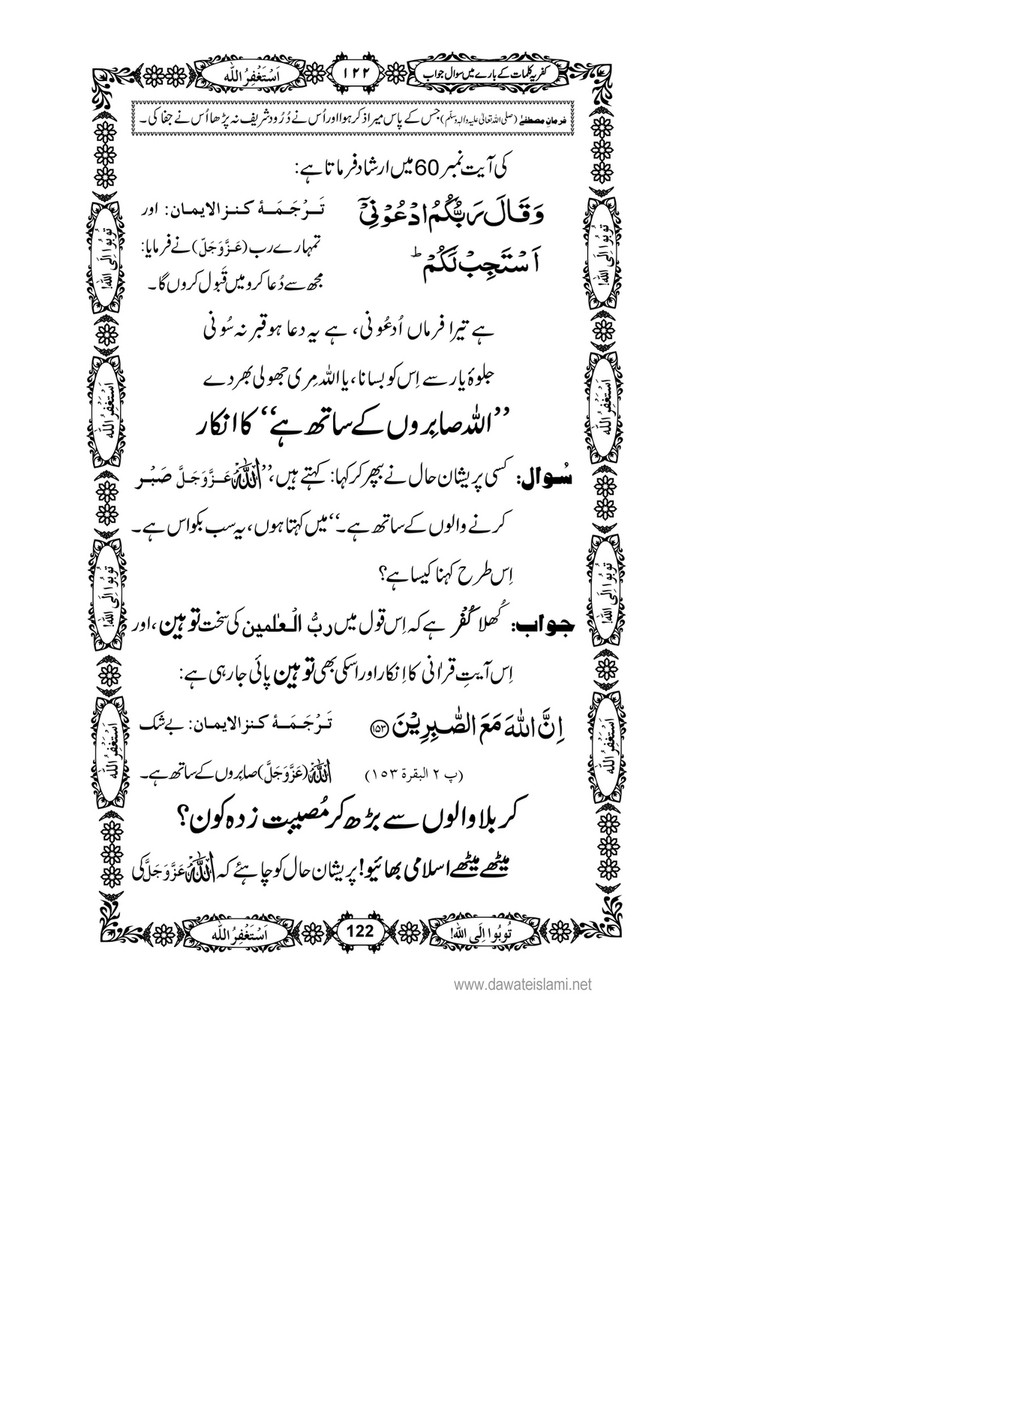 کفریہ کلمات کے بارے میں سوال جواب
۱۲۲
اَسْتَغْفِرُ اللّٰه
فرمانِ مصطفیٰ (صلی اللہ تعالیٰ علیہ والہ وسلم) جس کے پاس میرا ذکر ہوا اور اُس نے دُرُود شریف نہ پڑھا اُس نے جفا کی۔
کی آیت نمبر 60 میں ارشاد فرماتا ہے:
وَقَالَ رَبُّكُمُ ادْعُوْنِیْۤ
اَسْتَجِبْ لَكُمْ ؕ
تَرْجَمَهٔ کنز الایمان: اور
تمہارے رب (عَزَّوَجَلَّ) نے فرمایا:
مجھ سے دُعا کرو میں قَبول کروں گا۔
ہے تیرا فرماں اُدعُونی، ہے یہ دعا ہو قبر نہ سُونی
جلوۂ یار سے اِس کو بسانا، یا اللہ مِری جھولی بھر دے
’’اللہ صابِروں کے ساتھ ہے‘‘ کا انکار
سُوال: کسی پریشان حال نے بپھر کر کہا: کہتے ہیں، ’’اللّٰہ عَزَّوَجَلَّ صَبْر
کرنے والوں کے ساتھ ہے۔‘‘ میں کہتا ہوں، یہ سب بکواس ہے۔
اِس طرح کہنا کیسا ہے؟
جواب: کُھلا کُفْر ہے کہ اِس قول میں ربُّ الْعٰلمین کی سَخت توہین، اور
اِس آیتِ قراٰنی کا اِنکار اور اسکی بھی توہین پائی جا رہی ہے:
اِنَّ اللّٰهَ مَعَ الصّٰبِرِیْنَ ﴿۱۵۳﴾
(پ ۲ البقرة ۱۵۳)
تَرْجَمَهٔ کنز الایمان: بے شک
اللّٰہ (عَزَّوَجَلَّ) صابِروں کے ساتھ ہے۔
کربلا والوں سے بڑھ کر مُصیبت زدہ کون؟
میٹھے میٹھے اسلامی بھائیو! پریشان حال کو چاہئے کہ اللّٰہ عَزَّوَجَلَّ کی
تُوبُوا اِلَی اللّٰه!
122
اَسْتَغْفِرُ اللّٰه
تُوبُوا اِلَی اللّٰه!
اَسْتَغْفِرُ اللّٰه
تُوبُوا اِلَی اللّٰه!
اَسْتَغْفِرُ اللّٰه
تُوبُوا اِلَی اللّٰه!
اَسْتَغْفِرُ اللّٰه
تُوبُوا اِلَی اللّٰه!
اَسْتَغْفِرُ اللّٰه
www.dawateislami.net